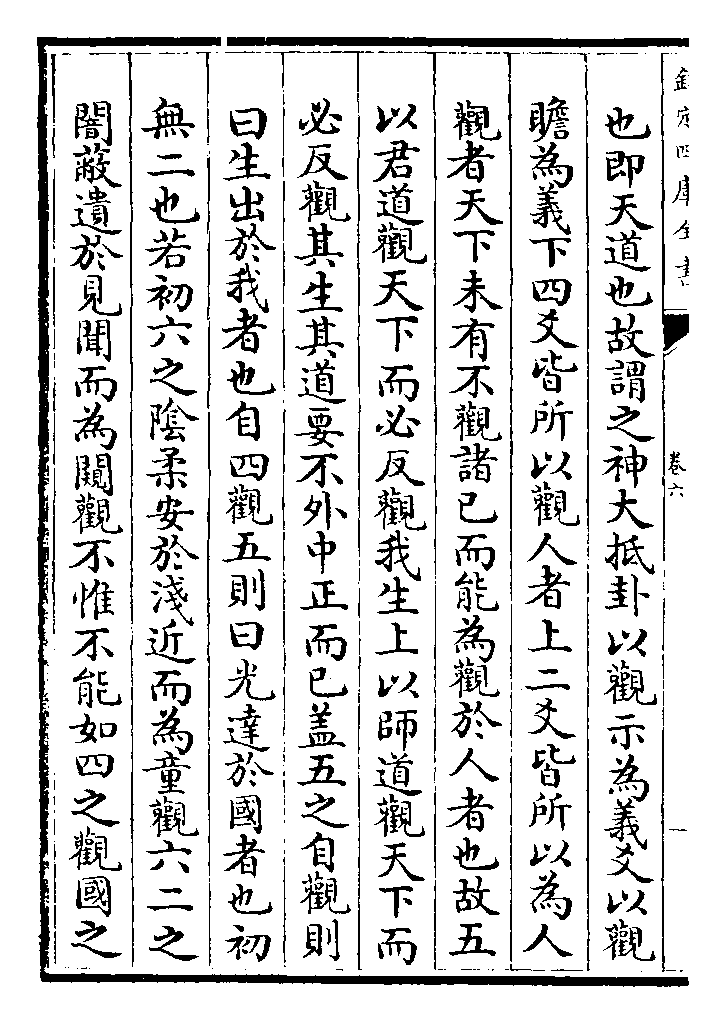 欽定四庫全書
卷六
一
也即天道也故謂之神大抵卦以觀示為義爻以觀
瞻為義下四爻皆所以觀人者上二爻皆所以為人
觀者天下未有不觀諸已而能為觀於人者也故五
以君道觀天下而必反觀我生上以師道觀天下而
必反觀其生其道要不外中正而已盖五之自觀則
曰生出於我者也自四觀五則曰光達於國者也初
無二也若初六之陰柔安於淺近而為童觀六二之
闇蔽遺於見聞而為闚觀不惟不能如四之觀國之